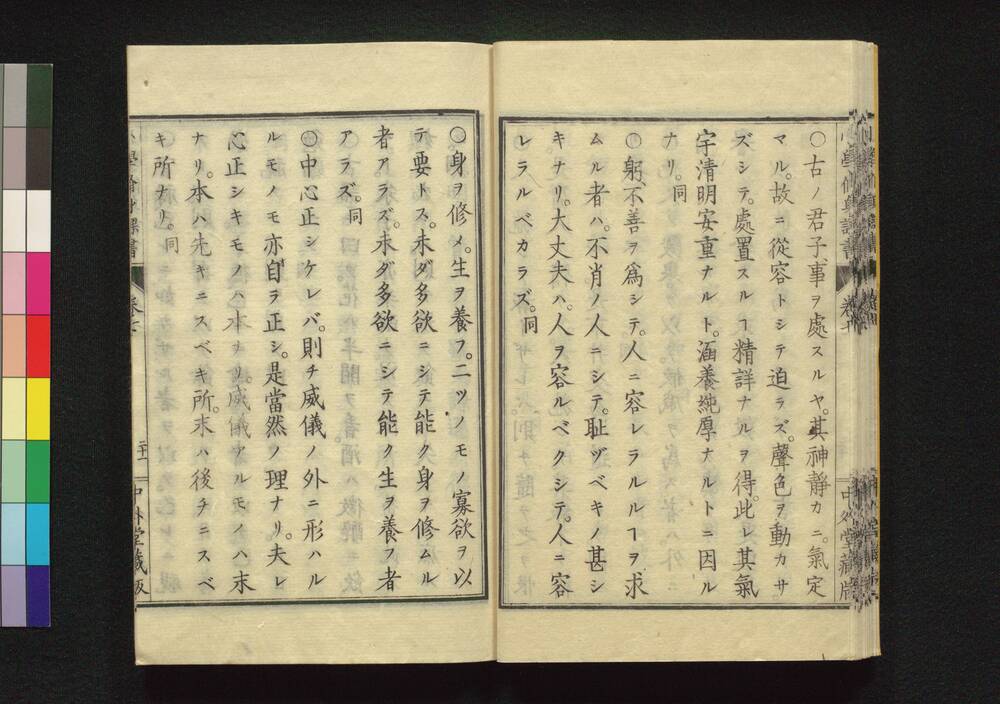 ○古ノ君子事ヲ處スルヤ。其神靜カニ。氣定
マル。故ニ從容トシテ迫ラズ。聲色ヲ動カサ
ズシテ。處置スルヿ精詳ナルヲ得。此レ其氣
宇清明安重ナルト。涵養純厚ナルトニ因ル
ナリ。同
○躬、不善ヲ爲シテ。人ニ容レラルルヿヲ求
ムル者ハ。不肖ノ人ニシテ。耻ヅベキノ甚シ
キナリ。大丈夫ハ。人ヲ容ルベクシテ。人ニ容
レラルベカラズ。同
○身ヲ修メ。生ヲ養フ。二ツノモノ寡欲ヲ以
テ要トス。未ダ多欲ニシテ能ク身ヲ修ムル
者アラズ。未ダ多欲ニシテ能ク生ヲ養フ者
アラズ。同
○中心正シケレバ。則チ威儀ノ外ニ形ハル
ルモノモ亦自ラ正シ。是當然ノ理ナリ。夫レ
心正シキモノハ本ナリ。威儀アルモノハ末
ナリ。本ハ先キニスベキ所。末ハ後チニスベ
キ所ナリ。同
卷七
二十一
中外堂藏版